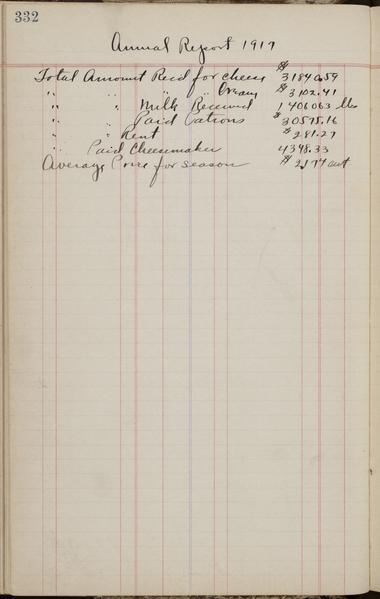 332
Annual Report 1917
Total Amount Recd for cheese $31840.59
" " " " Cream $3102.41
" " Milk Received 1406063 lbs
" " Paid Patrons $30578.16
" " Rent $281.27
" Paid Cheesemaker 4398.33
Average Price for season $2.177 cwt